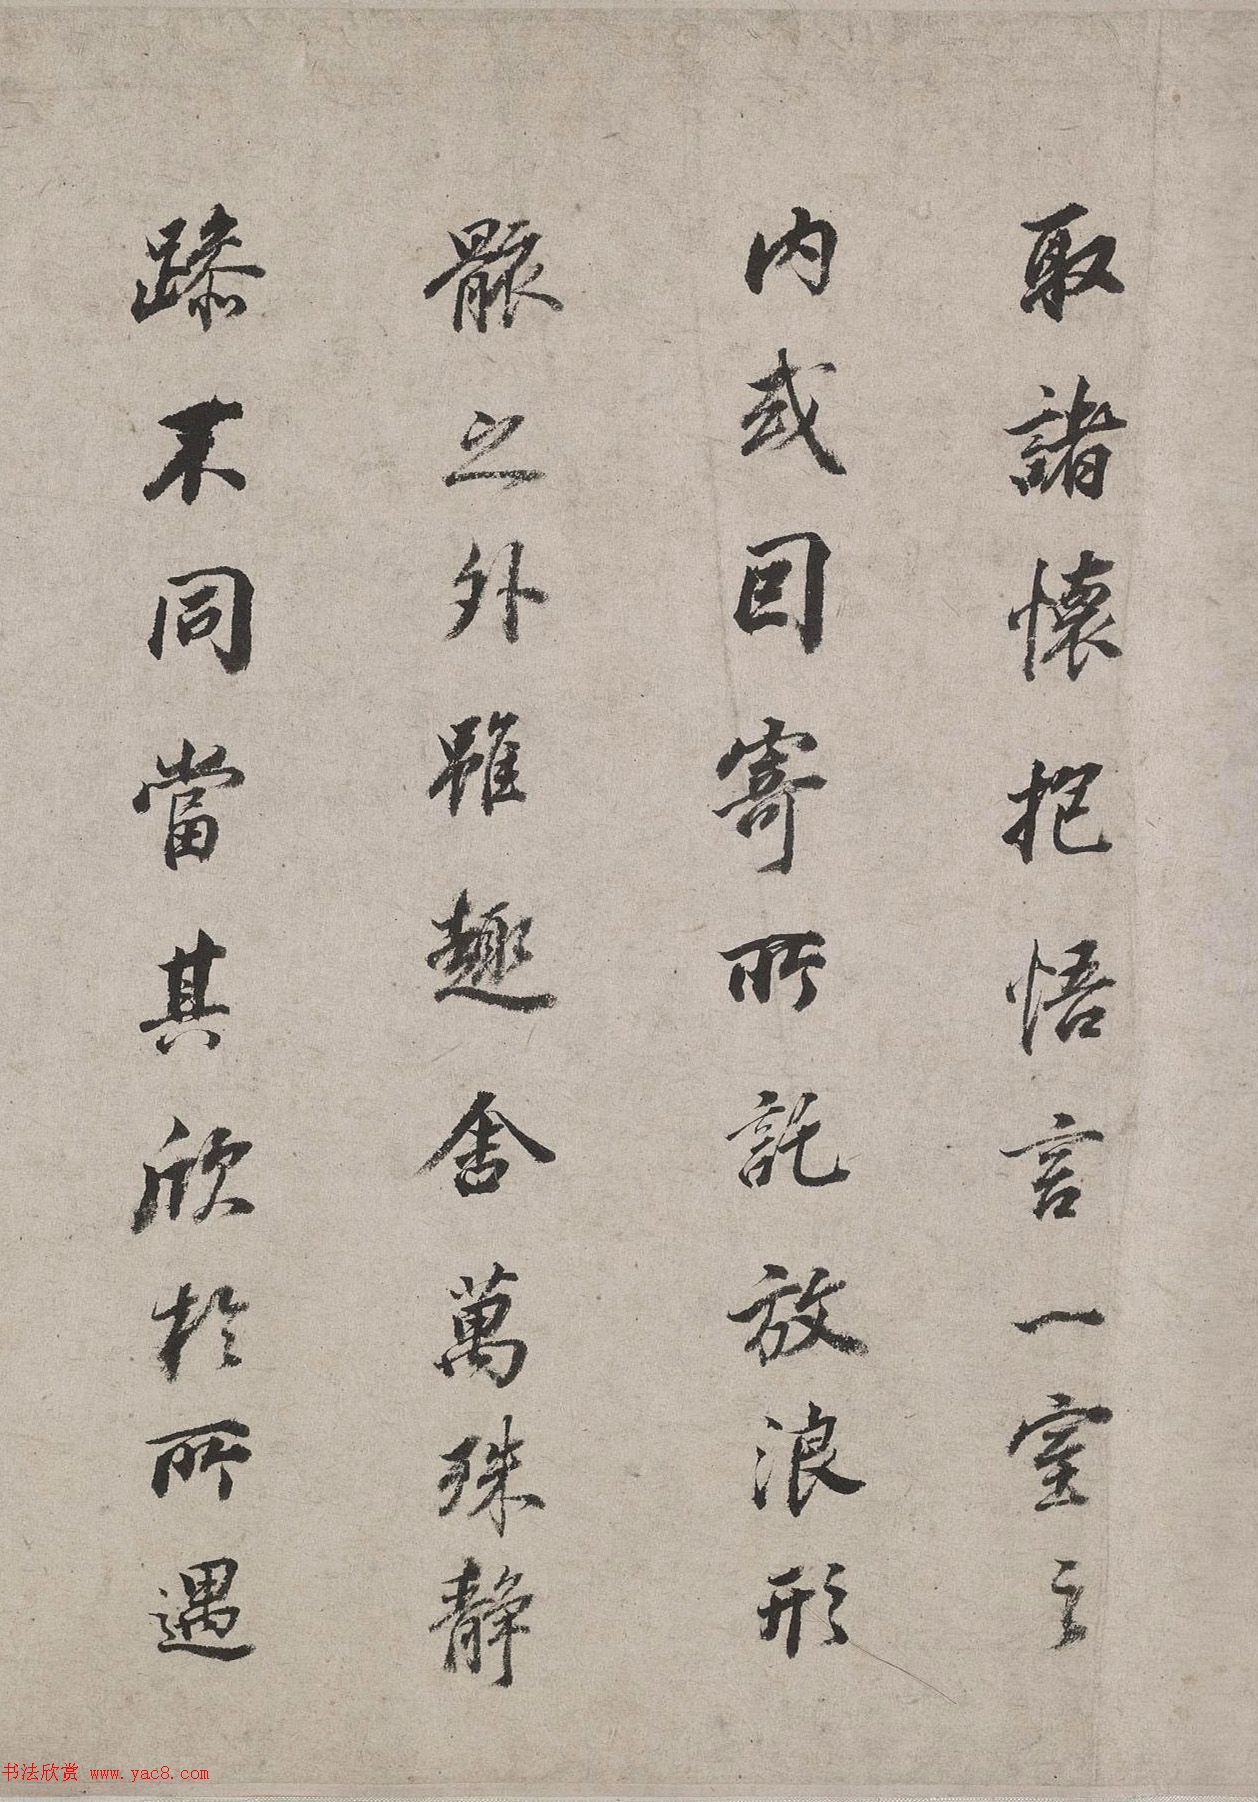 取諸懷抱悟言一室之
内或因寄所託放浪形
骸之外雖趣舍萬殊静
躁不同當其欣於所遇
书法欣赏 www.yac8.com